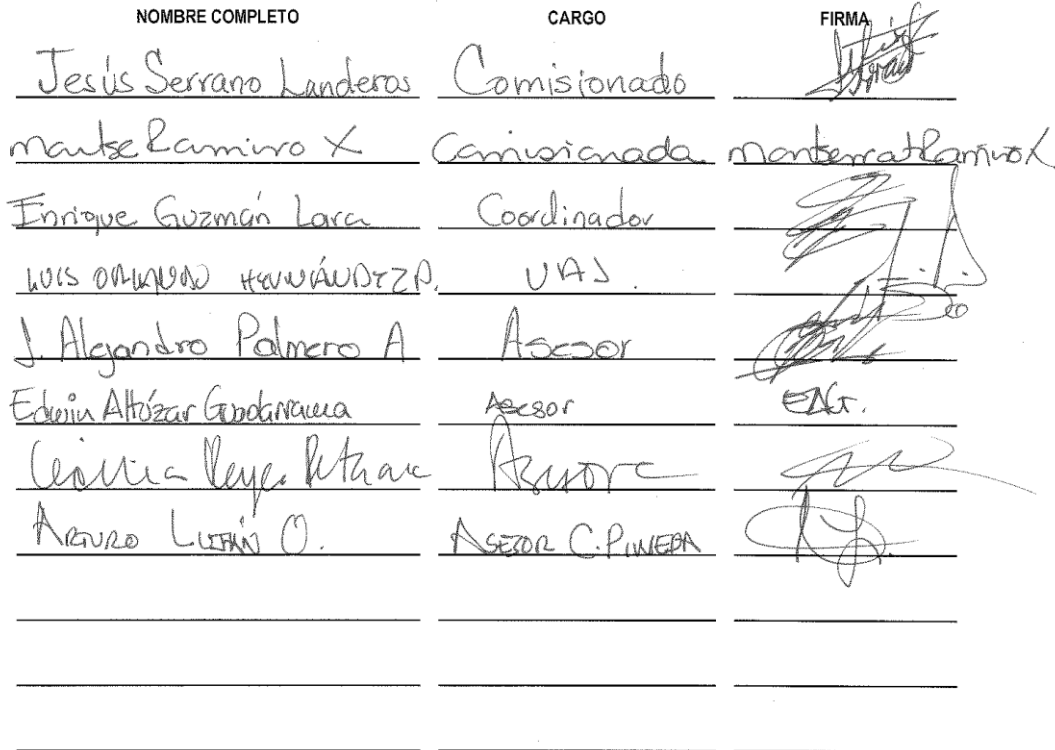 NOMBRE COMPLETO CARGO FIRMA
Jesús Serrano Landeros Comisionado
Montse Ramiro X Comisionada Montserrat Ramiro X
Enrique Guzmán Lara Coordinador
LUIS ORLANDO HERNÁNDEZ P. UAJ.
J. Alejandro Palmero A Asesor
Edwin Altúzar Guadarrama Asesor EAG.
Reyes Asesora
ARTURO LUJÁN O. ASESOR C. PINEDA